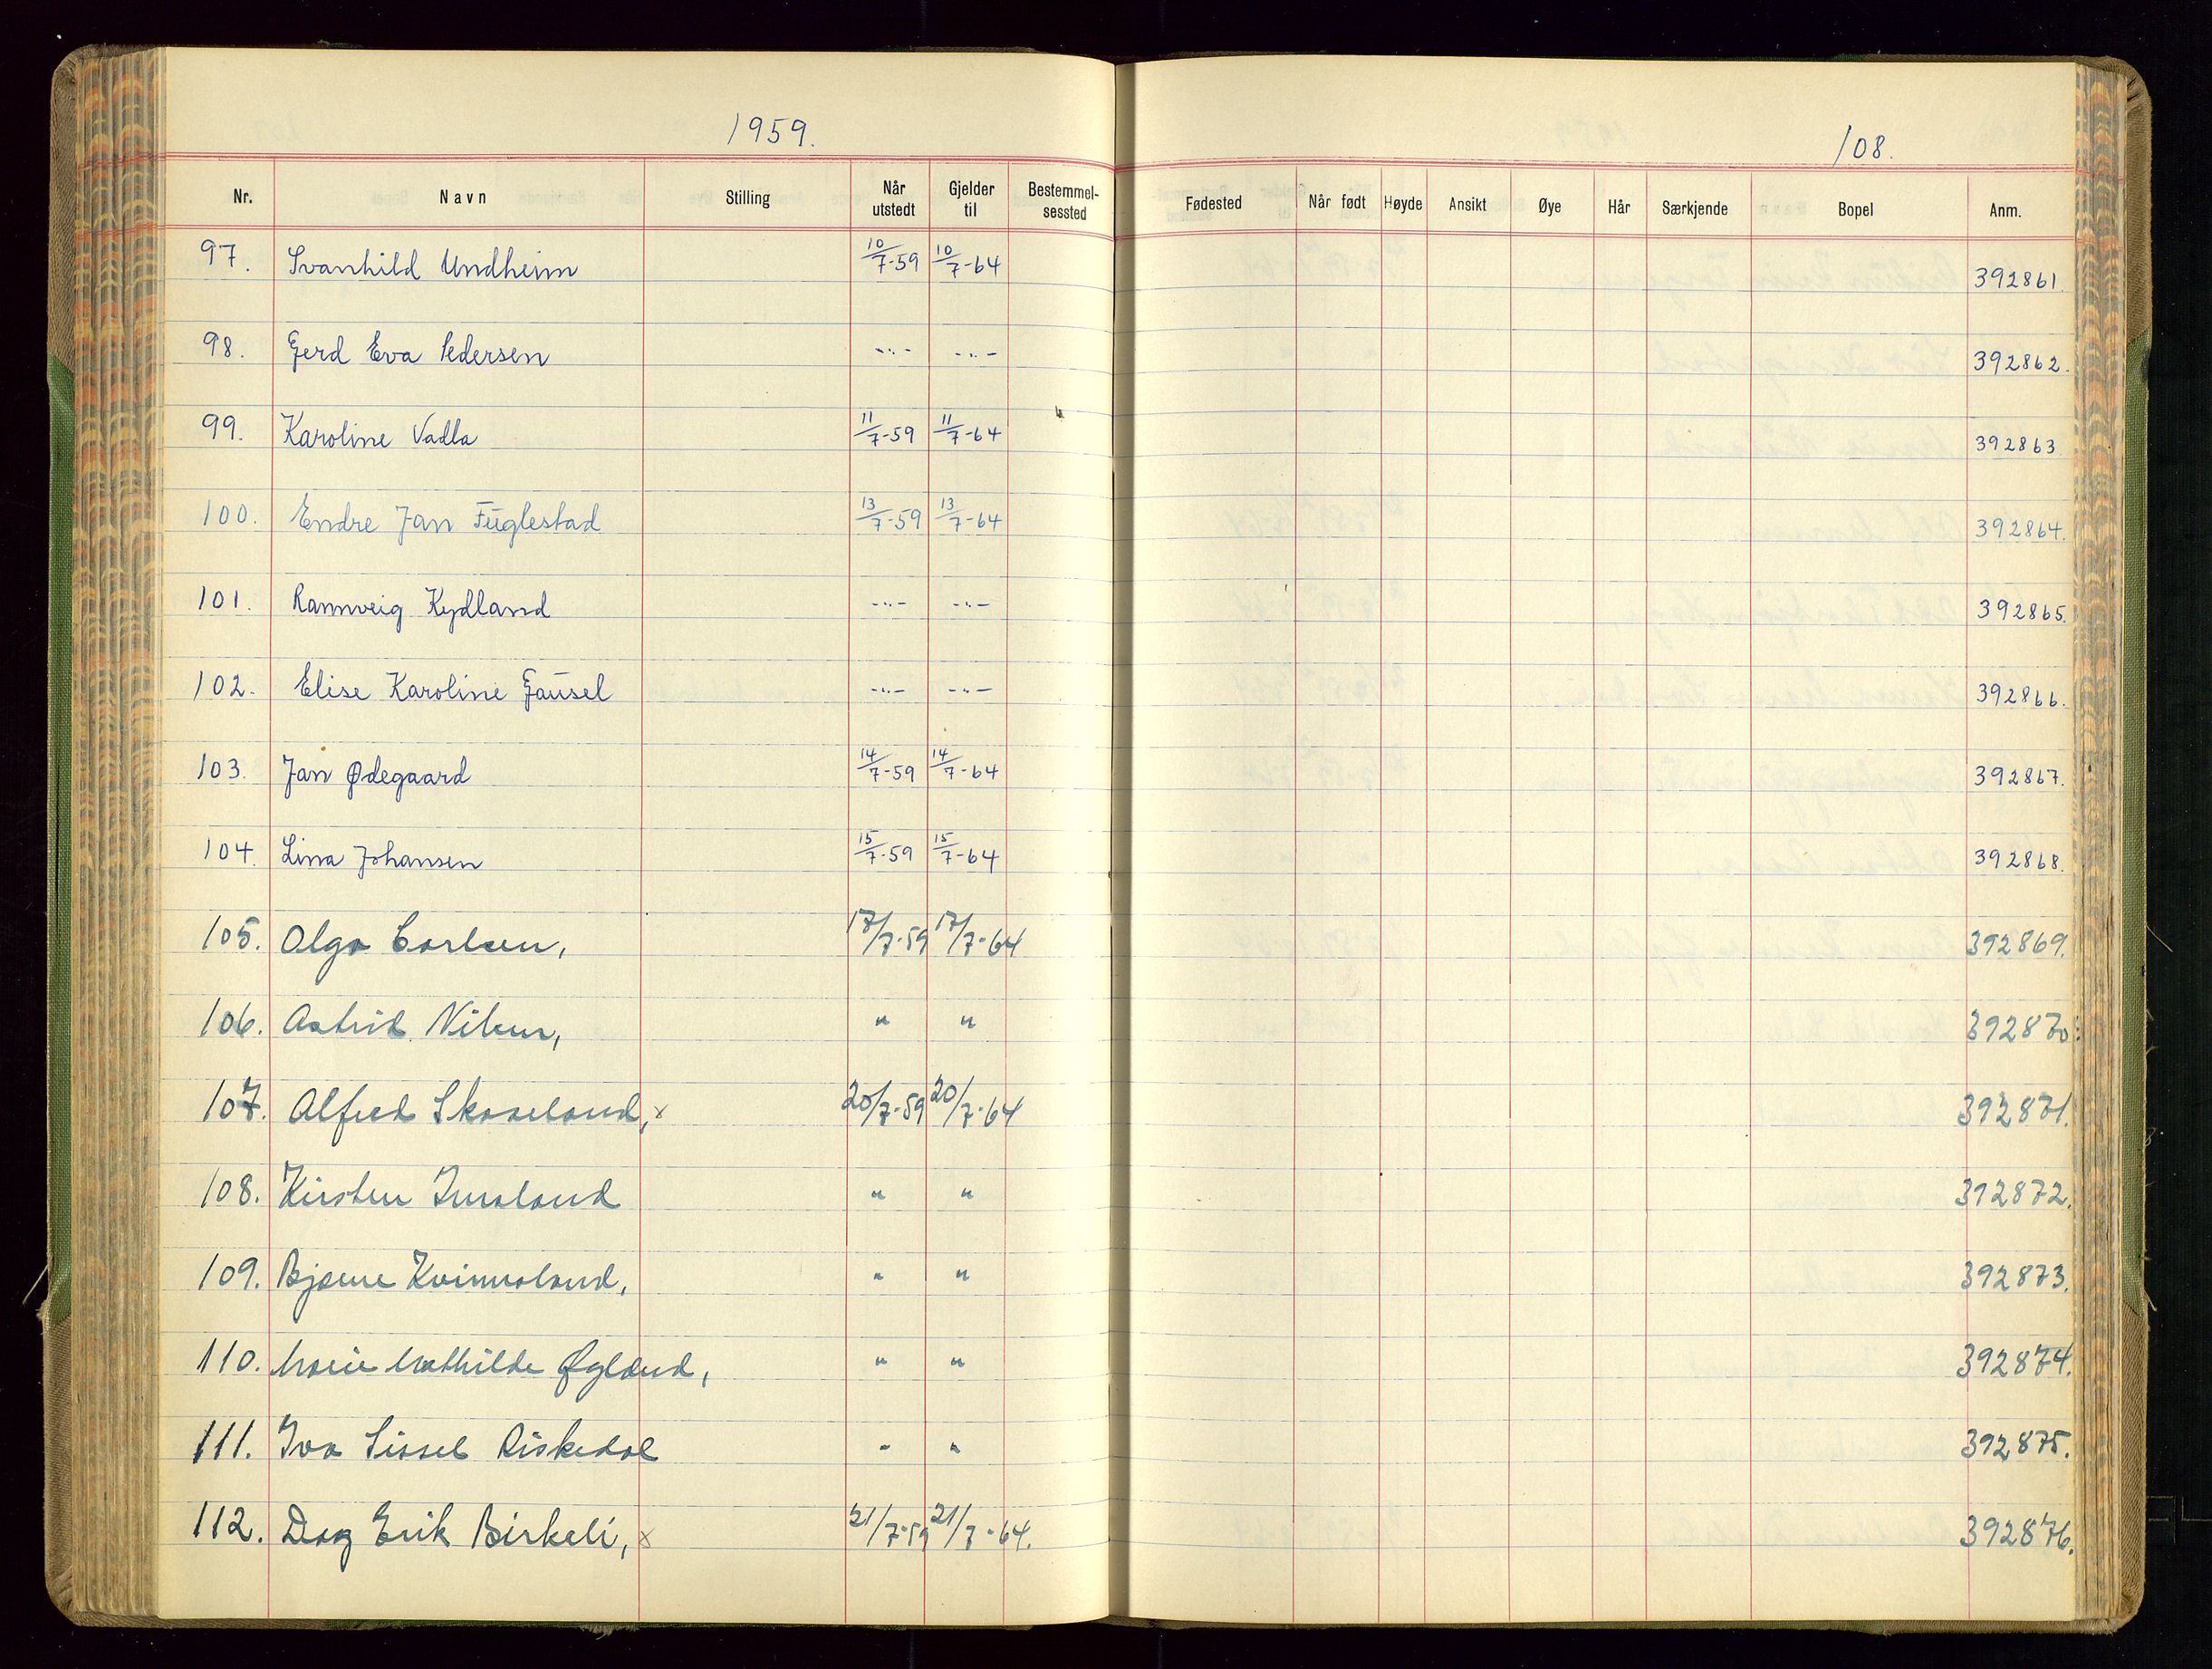 1959.
108.
Nr. Navn Stilling Når utstedt Gjelder til Bestemmel-sessted Fødested Når født Høyde Ansikt Øye Hår Særkjende Bopel Anm.
97. Svanhild Undheim 10/7-59 10/7-64 392861.
98. Gerd Eva Pedersen -"- -"- 392862.
99. Karoline Vadla 11/7-59 11/7-64 392863
100. Endre Jan Fuglestad 13/7-59 13/7-64 392864.
101. Rannveig Kydland -"- -"- 392865.
102. Elise Karoline Gausel -"- -"- 392866.
103. Jan Ødegaard 14/7-59 14/7-64 392867.
104. Lina Johansen 15/7-59 15/7-64 392868.
105. Olga Carlsen, 17/7-59 17/7-64 392869.
106. Astrid " " 392870.
107. Alfred Skaseland, x 20/7-59 20/7-64 392871.
108. Kirsten Imsland " " 392872.
109. Bjarne Kvinnsland, " " 392873.
110. Marie Mathilde Øgland, " " 392874.
111. Iva Sissel Riskedal " " 392875.
112. Dag Erik Birkeli, x 21/7-59 21/7-64. 392876.